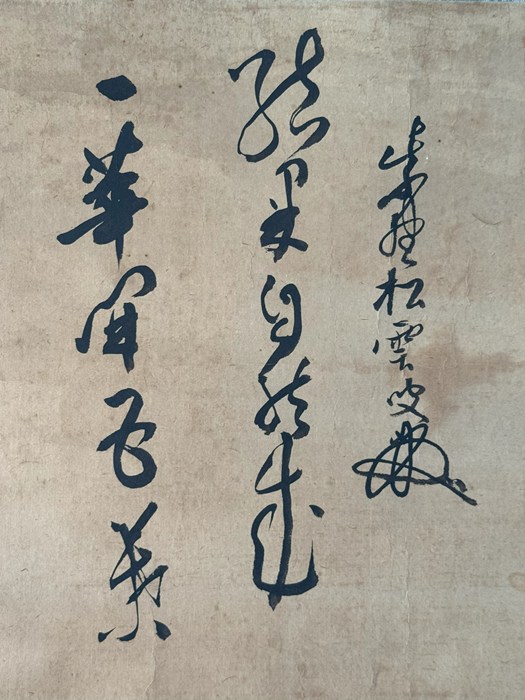 一華開五葉
結果自然成
紫野松雲叟